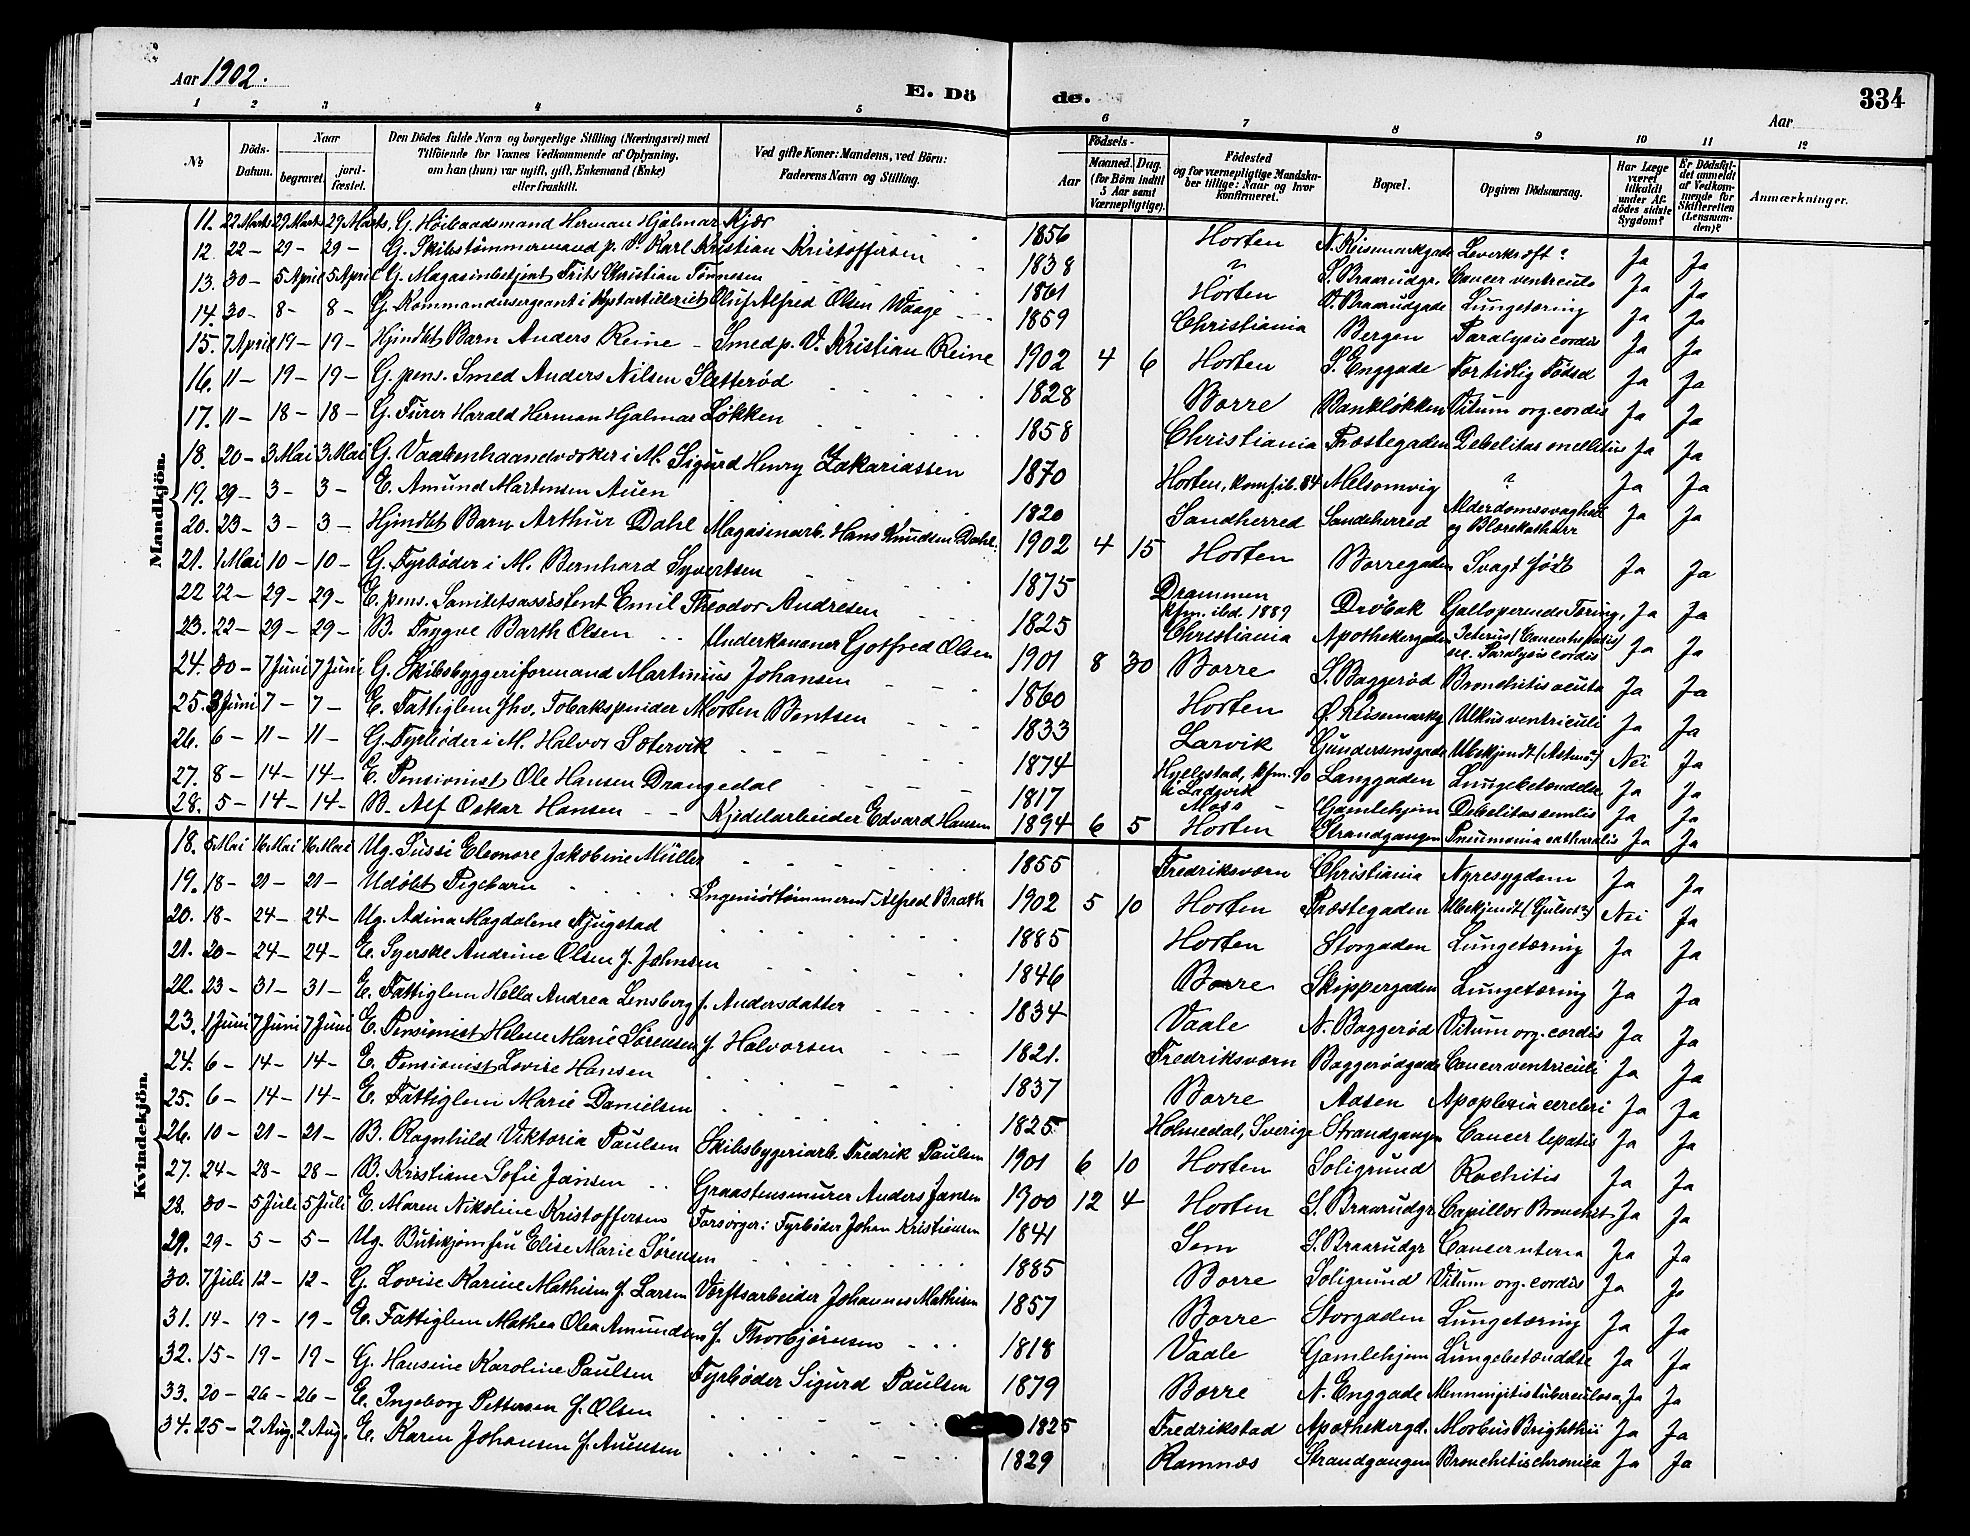 Aar 1902.
E. Dö
de.
334
Aar
1 2 3 4 5 6 7 8 9 10 11 12
No
Döds-Datum.
Naar
begravet.
jord-fæstet.
Den Dödes fulde Navn og borgerlige Stilling (Næringsvei) med Tilföiende for Voxnes Vedkommende af Oplysning, om han (hun) var ugift, gift, Enkemand (Enke) eller fraskilt.
Ved gifte Koner: Mandens, ved Börn: Faderens Navn og Stilling.
Födsels-
Aar
Maaned. Dag.
(for Börn indtil 5 Aar samt Værnepligtige).
Födested og for værnepligtige Mandskaber tillige: Naar og hvor konfirmeret.
Bopæl.
Opgiven Dödsaarsag.
Har Læge været tilkaldt under Afdödes sidste Sygdom?
Er Dödsfaldet anmeldt af Vedkommende for Skifteretten (Lensmanden)?
Anmærkninger.
Mandkjön.
11. 22 Marts 29 Marts 29 Marts. G. Høibaadsmand Herman Hjalmar Kjær 1856 Horten N. Keisemarkgade Leverkræft? Ja Ja
12. 22 – 29 – 29 – G. Skibstømmermand p. V. Karl Kristian Kristoffersen 1838 ? S. Braarudgr. Cancer ventriculi Ja Ja
13. 30 – 5 April 5 April G. Magasinbetjent Frits Christian Tønnesen 1861 Horten V. Braarudgade Lungetæring Ja Ja
14. 30 – 8 – 8 – G. Kommandersergeant i Kystartilleriet Oluf Alfred Olsen Waage 1859 Christiania Bergen Paralysis cordis Ja Ja
15. 7 April 19 – 19 – Hjmdbt Barn Anders Reine – Smed p. V. Kristian Reine 1902 4 6 Horten S. Enggade For tidlig Födsel Ja Ja
16. 11 – 19 – 19 – G. pens. Smed Anders Nilsen Sletterød 1828 Borre Bankløkken Vitum org. cordis Ja Ja
17. 11 – 18 – 18 – G. Furer Harald Herman Hjalmar Løkken 1858 Christiania Præstegaden Debelitas mellitus Ja Ja
18. 20 – 3 Mai 3 Mai G. Vaabenhaandverker i M. Sigurd Henry Zakariassen 1870 Horten, konf. ib. 84 Melsomvig ? Ja Ja
19. 29 – 3 – 3 – E. Amund Martinsen Auen 1820 Sandherred Sandeherred Alderdomssvaghed og Blærekatharr Ja Ja
20. 23 – 3 – 3 – Hjmdbt Barn Arthur Dahl Magasinarb. Hans Knudsen Dahl. 1902 4 15 Horten Borregaden Svagt født Ja Ja
21. 1 Mai 10 – 10 – G. Fyrbøder i M. Bernhard Syvertsen 1875 Drammen kfm. ibd. 1889 Drøbak Galloperende Tæring, Ja Ja
22 22 – 29 – 29 – E. pens. Sanitetsassistent Emil Theodor Andresen 1825 Christiania Apothekergaden Icterus (Cancer hepatis) sec. Paralysis cordis Ja Ja
23. 22 – 29 – 29 – B. Trygve Barth Olsen Underkanoner Gotfred Olsen 1901 8 30 Borre S. Baggerød Bronchitis acuta Ja Ja
24. 30 – 7 Juni 7 Juni G. Skibsbyggeriformand Martinius Johansen 1860 Horten Ø. Keisemarkg Ulkus ventriculi Ja Ja
25. 3 Juni 7 – 7 – E. Fattiglem fhv. Tobakspinder Morten Bentsen 1833 Larvik Gundersensgade Ubekjendt (Astma?) Nei Ja
26. 6 – 11 – 11 – G. Fyrbøder i M. Halvor Sætervik 1874 Hyllestad, kfm. 90 i Ladvik Langgaden Lungebetændelse Ja Ja
27. 8 – 14 – 14 – E. Pensionist Ole Hansen Drangedal 1817 Moss Gamlehjem Debelitas senilis Ja Ja
28. 5 – 14 – 14 – B. Alf Oskar Hansen Kjedelarbeider Edvard Hansen 1894 6 5 Horten Strandgangen Pneumonia catharalis Ja Ja
Kvindekjön.
18. 5 Mai 16 Mai 16 Mai Ug. Sussi Eleonore Jakobine Müller 1855 Fredriksværn Christiania Nyresygdom Ja Ja
19. 18 – 21 – 21 – Udøbt Pigebarn Ingeniørtømmermd Alfred Brath 1902 5 10 Horten Præstegaden Ubekjendt (Gulsot?) Nei Ja
20. 18 – 24 – 24 – Ug. Adina Magdalene Fjugstad 1885 Horten Storgaden Lungetæring Ja Ja
21. 20 – 24 – 24 – E. Syerske Andrine Olsen f. Johnsen 1846 Borre Skippergaden Lungetæring Ja Ja
22. 23 – 31 – 31 – E. Fattiglem Hella Andrea Lensberg f. Andersdatter 1834 Vaale N. Baggerød Vitum org. cordis Ja Ja
23. 1 Juni 7 Juni 7 Juni E. Pensionist Helene Marie Sørensen f. Halvorsen 1821. Fredriksværn Baggerødgade Cancer ventriculi Ja Ja
24. 6 – 14 – 14 – E. Pensionist Lovise Hansen 1837 Borre Aasen Apoplexia cerebri Ja Ja
25. 6 – 14 – 14 – E. Fattiglem Marie Danielsen 1825 Holmedal, Sverige Strandgangen Cancer lepatis Ja Ja
26. 10 – 21 – 21 – B. Ragnhild Viktoria Paulsen Skibsbygeriarb. Fredrik Paulsen 1901 6 10 Horten Soligrund Rachitis Ja Ja
27. 24 – 28 – 28 – B. Kristiane Sofie Jansen Graastensmurer Anders Jansen 1900 12 4 Horten S. Braarudgr Capillær Bronchit Ja Ja
28. 30 – 5 Juli 5 Juli E. Maren Nikoline Kristoffersen Forsørger: Fyrbøder Johan Kristiansen 1841 Sem S. Braarudgr Cancer uteria Ja Ja
29. 29 – 5 – 5 – Ug. Butikjomfru Elise Marie Sørensen 1885 Borre Soligrund Vitum org. cordis Ja Ja
30. 7 Juli 12 – 12 – G. Lovise Karine Mathisen f. Larsen Værftsarbeider Johannes Mathisen 1857 Borre Storgaden Lungetæring Ja Ja
31. 14 – 19 – 19 – E. Fattiglem Mathea Olea Amundsen f. Thorbjørnsen 1818 Vaale Gamlehjem Lungebetændelse Ja Ja
32. 15 – 19 – 19 – G. Hansine Karoline Paulsen Fyrbøder Sigurd Paulsen 1879 Borre N. Enggade Menningitis tuberculosa, Ja Ja
33. 20 – 26 – 26 – E. Ingeborg Pettersen f. Olsen 1825 Fredrikstad Apothekergd. Morbus Brighthii Ja Ja
34. 25 – 2 Aug. 2 Aug. E. Karen Johansen f. Auensen 1829 Ramnæs Strandgangen Bronchitis chronica Ja Ja